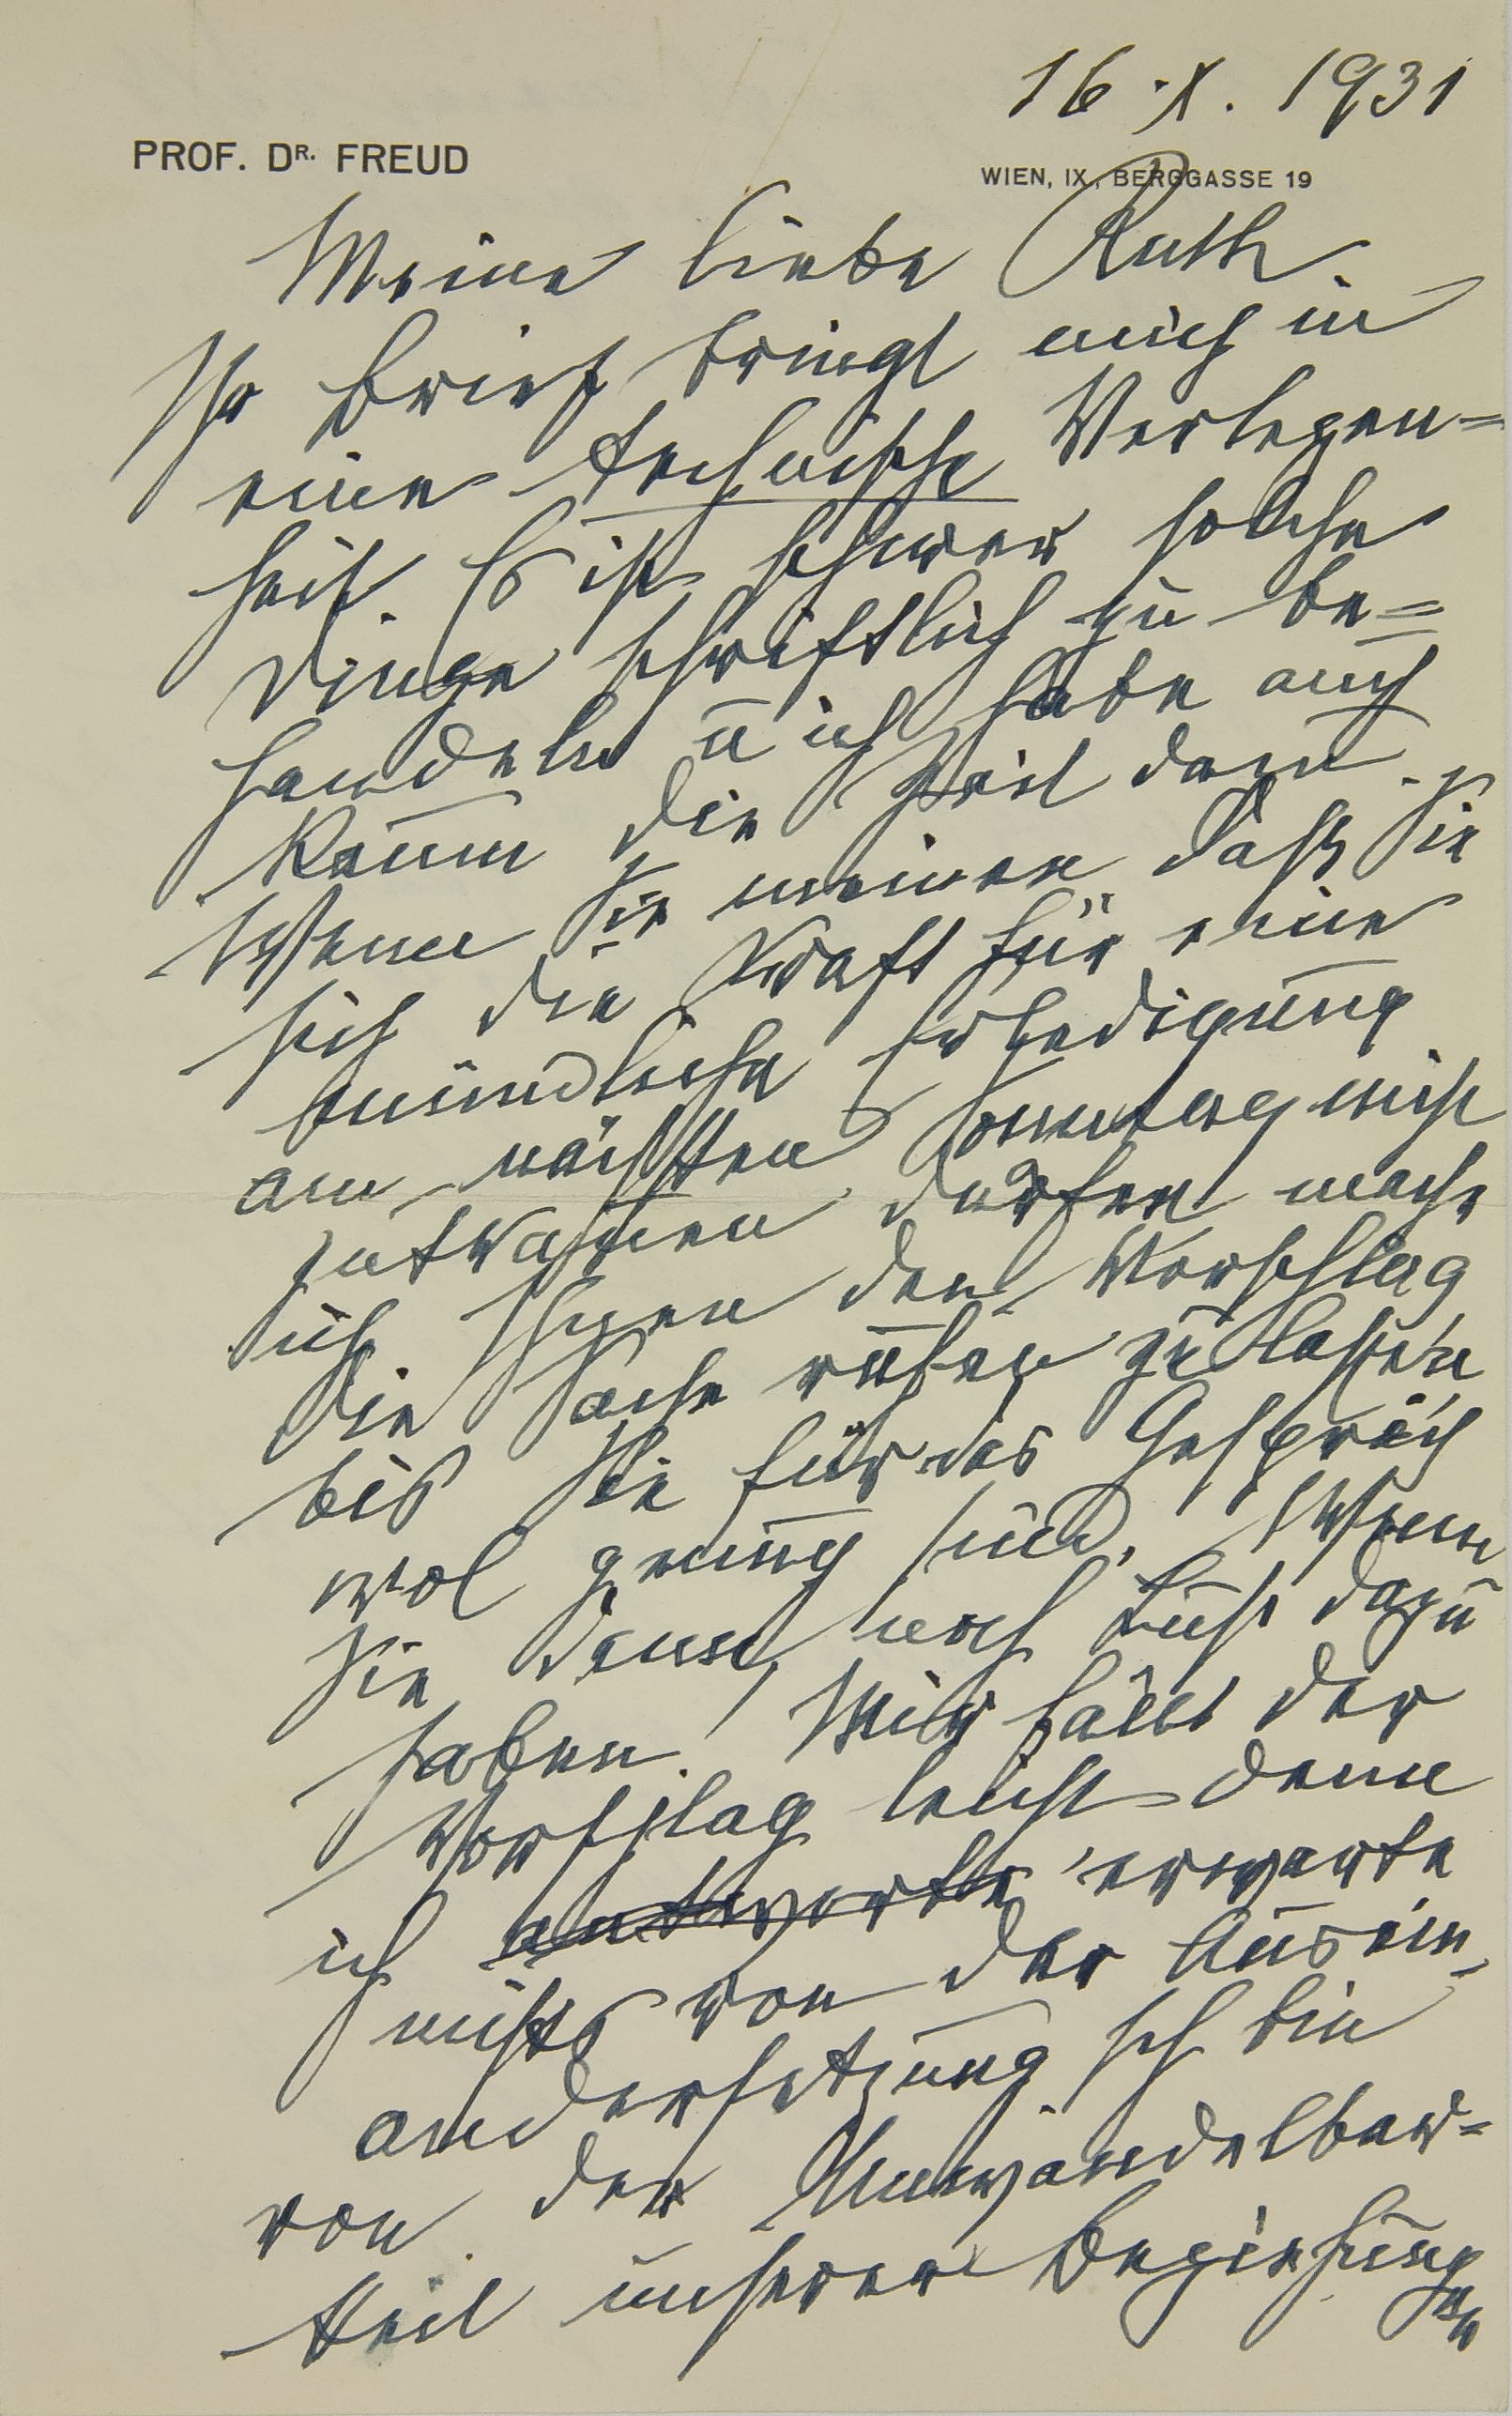 16.X.1931
PROF. DR. FREUD
WIEN, IX., BERGGASSE 19
Meine liebe Ruth
Ihr Brief bringt mich in
eine technische Verlegen=
heit. Es ist schwer solche
Dinge schriftlich zu be=
handeln u ich habe auch
kaum die Zeit dazu.
Wenn Sie meinen daß Sie
sich die Kraft für eine
mündliche Erledigung
am nächsten Sonntag nicht
zutrauen dürfen mache
ich Ihnen den Vorschlag
die Sache ruhen zu lassen
bis Sie für das Gespräch
wol genug sind. Wenn
Sie dann noch Lust dazu
haben! Mir fällt der
Vorschlag leicht denn
ich antworte erwarte
nichts von der Ausein-
andersetzung. Ich bin
von der Unwandelbar=
keit unserer Beziehung